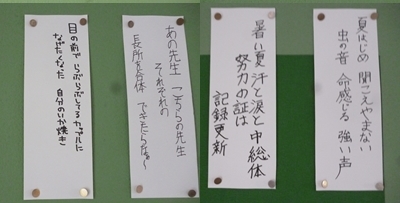 夏はじめ 聞こえやまない
虫の音 命感じる 強い声
暑い夏 汗と涙と 中総体
努力の証は
記録更新
あの先生 こちらの先生
それぞれの
長所を合体 できたらな〜
目の前で らぶらぶしてるカップルに
なげたくなった 自分のいか焼き